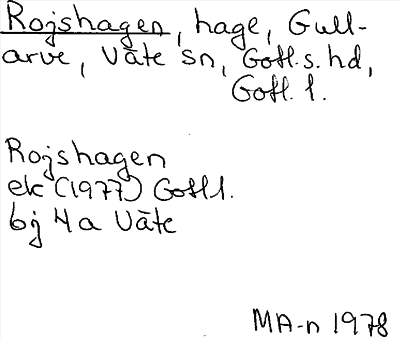 Rojshagen, hage, Gull-
arve, Väte sn, Gotl. s. hd,
Gotl. l.
Rojshagen
ek (1977) Gotl l.
bj 4 a Väte
MA-n 1978